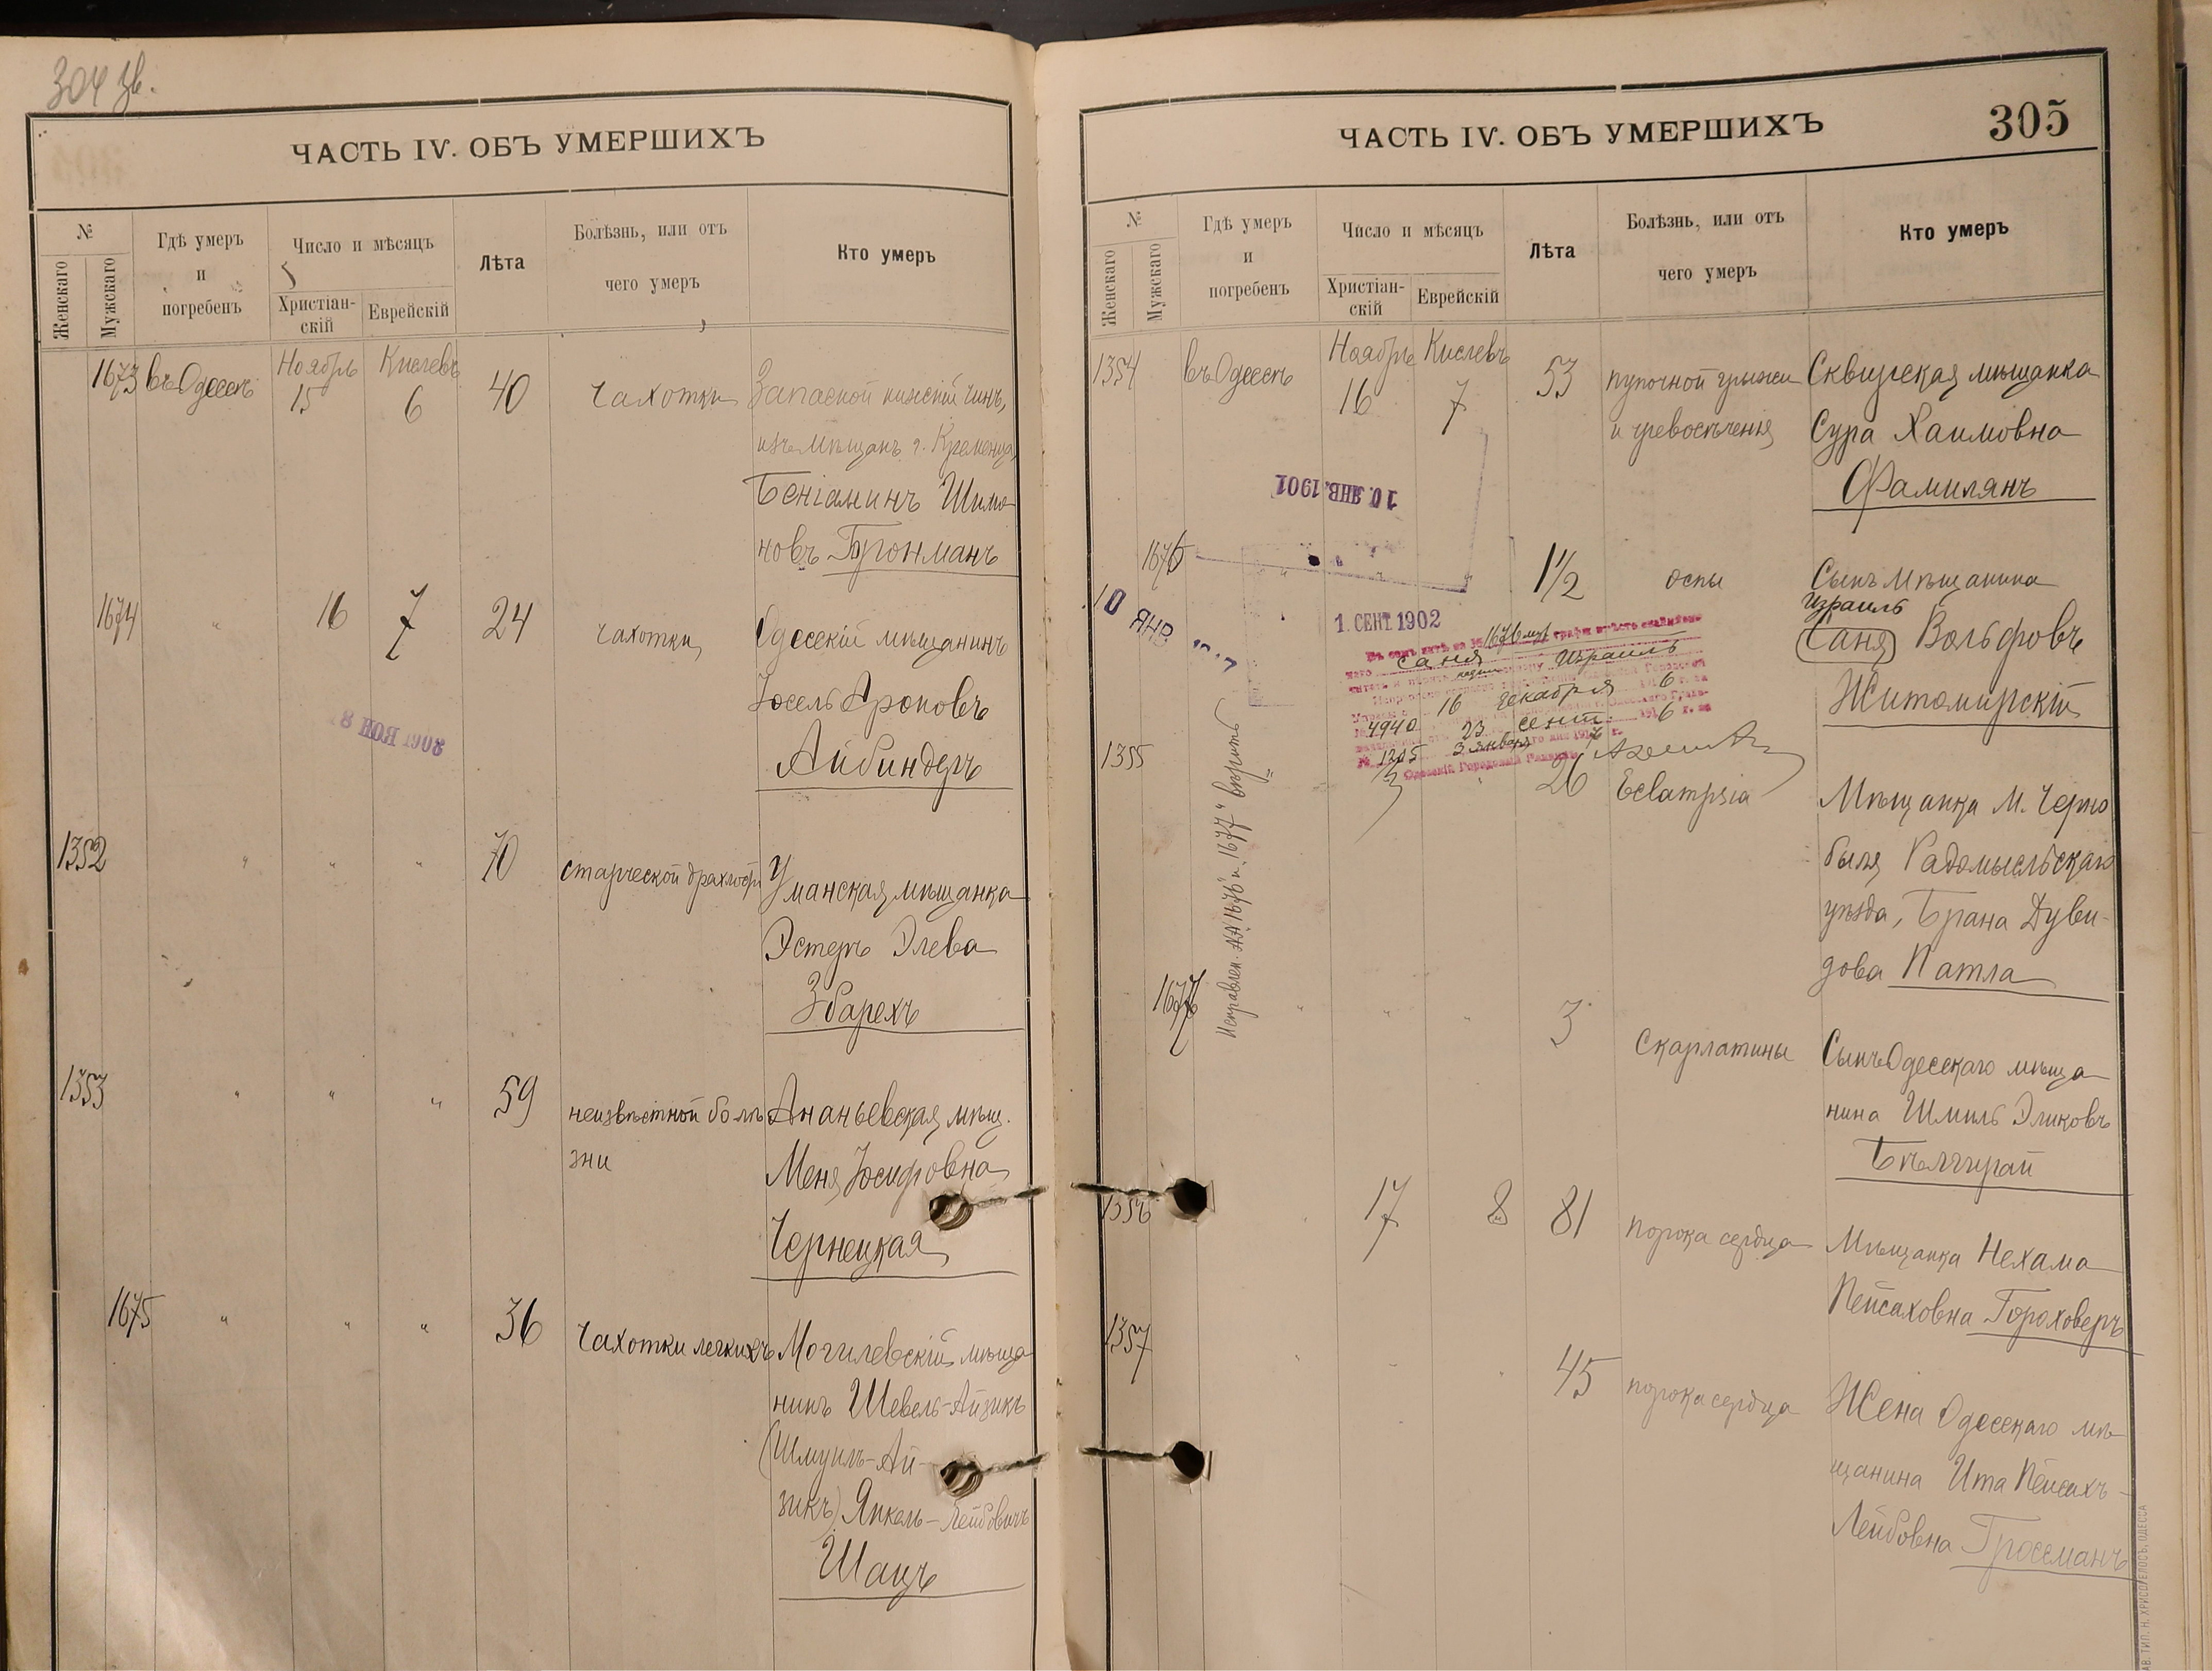 304 зв.
ЧАСТЬ IV. ОБЪ УМЕРШИХЪ
№
Женскаго
Мужскаго
Гдѣ умеръ
и
погребенъ
Число и мѣсяцъ
Христіан-
скій
Еврейскій
Лѣта
Болѣзнь, или отъ
чего умеръ
Кто умеръ
1673 въ Одессѣ Ноябрь 15 Кислевъ 6 40 чахотки Запасной нижній чинъ,
изъ мѣщанъ г. Кременца,
Беніаминъ Шимо
новъ Гронманъ
1674 " 16 7 24 чахотки Одесскій мѣщанинъ
Іосель Ароновъ
Айбиндеръ
1352 " " " 70 старческой дряхлости Уманская мѣщанка
Эстеръ Элева
Збарехъ
1353 " " " 59 неизвѣстной болѣ Ананьевская мѣщ.
зни Меня Іосифовна
Чернецкая
1675 " " " 36 чахотки легкихъ Могилевскій мѣща
нинъ Шевель-Айзикъ
(Шмуиль-Ай-
зикъ) Янкель-Лейбовичъ
Шацъ
ЧАСТЬ IV. ОБЪ УМЕРШИХЪ
305
№
Женскаго
Мужскаго
Гдѣ умеръ
и
погребенъ
Число и мѣсяцъ
Христіан-
скій
Еврейскій
Лѣта
Болѣзнь, или отъ
чего умеръ
Кто умеръ
1354 въ Одессѣ Ноябрь 16 Кислевъ 7 53 пупочной грыжи Сквирская мѣщанка
и чревосѣченія Сура Хаимовна
Фамилянъ
10. ЯНВ. 1901
1676 " " " 1½ оспы Сынъ мѣщанина
Израиль
Саня Вольфовъ
Житомирскій
10 ЯНВ
1. СЕНТ. 1902
1676 муж графѣ вмѣсто
Саня
Израиль
16 декабря 6
4940 23 сент 1916 г. за
№ 1205 3 января
Одесскій Городовой Раввинъ
1355 26 Eclampsia Мѣщанка м. Черно
быля Радомысльскаго
уѣзда, Брана Дуви-
дова Патла
Исправлен. №№ 1676 и "1677" вѣрить
1677 " " " 3 Скарлатины Сынъ Одесскаго мѣща
нина Шмиль Эликовъ
Бѣлгурай
1356 17 8 81 порока сердца Мѣщанка Нехама
Пейсаховна Гороховеръ
1357 45 порока сердца Жена Одесскаго мѣ
щанина Ита Пейсахъ-
Лейбовна Гроссманъ